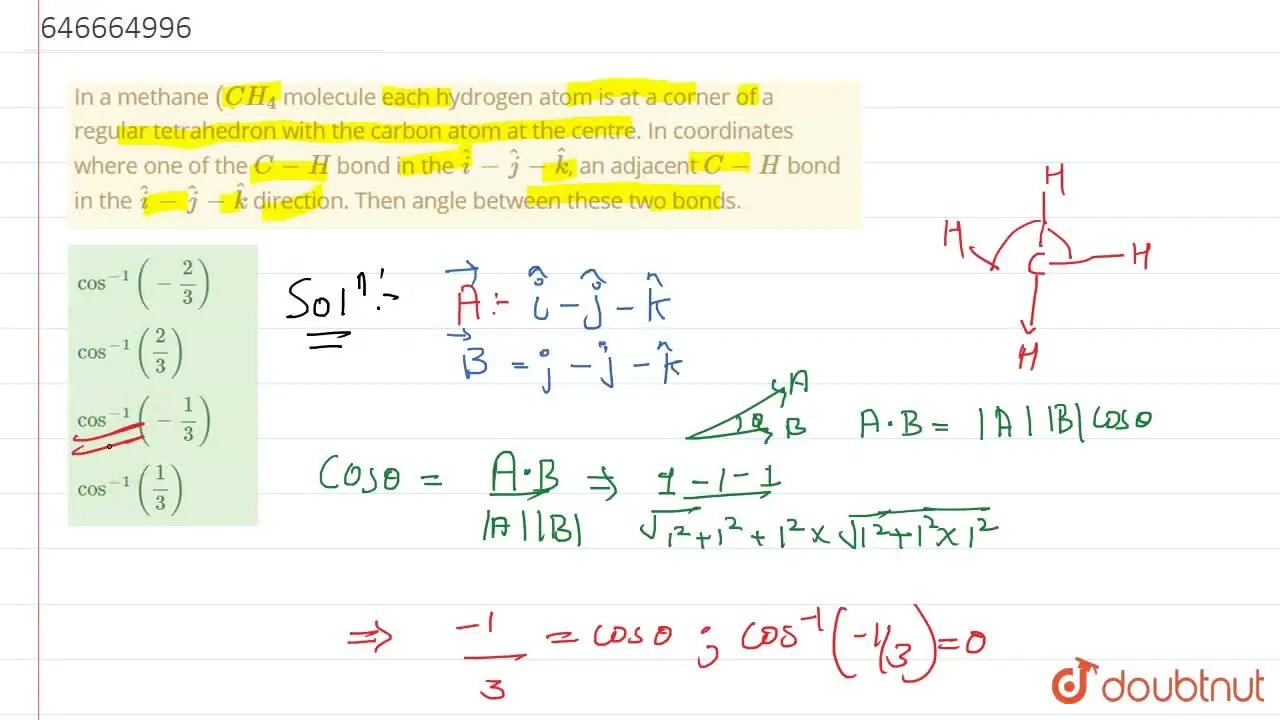 646664996
In a methane (CH₄ molecule each hydrogen atom is at a corner of a
regular tetrahedron with the carbon atom at the centre. In coordinates
where one of the C − H bond in the î − ĵ − k̂, an adjacent C − H bond
in the î − ĵ − k̂ direction. Then angle between these two bonds.
cos⁻¹(−2/3)
cos⁻¹(2/3)
cos⁻¹(−1/3)
cos⁻¹(1/3)
Solⁿ:-
A⃗ :- î − ĵ − k̂
B⃗ = j − j − k̂
H
H
C
H
H
A
θ
B
A·B = |A||B| cosθ
Cosθ = A·B / |A||B| ⇒ 1−1−1 / √1²+1²+1² × √1²+1²×1²
⇒ −1/3 = cosθ ; cos⁻¹(−1/3) = θ
doubtnut